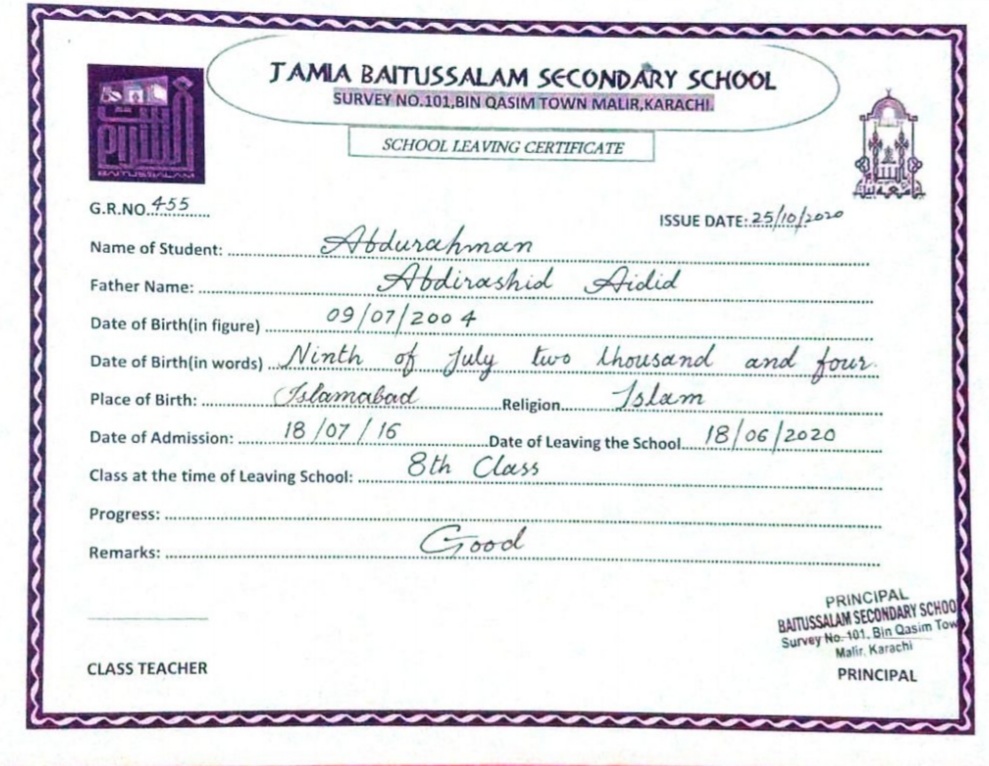 JAMIA BAITUSSALAM SECONDARY SCHOOL
SURVEY NO.101,BIN QASIM TOWN MALIR,KARACHI.
SCHOOL LEAVING CERTIFICATE
BAITUSSALAM
G.R.NO. 455
ISSUE DATE: 25/10/2020
Name of Student: Abdurahman
Father Name: Abdirashid Aidid
Date of Birth(in figure) 09/07/2004
Date of Birth(in words) Ninth of July two thousand and four.
Place of Birth: Islamabad Religion Islam
Date of Admission: 18/07/16 Date of Leaving the School 18/06/2020
Class at the time of Leaving School: 8th Class
Progress:
Remarks: Good
PRINCIPAL
BAITUSSALAM SECONDARY SCHOO
Survey No. 101, Bin Qasim Tow
Malir, Karachi
CLASS TEACHER
PRINCIPAL